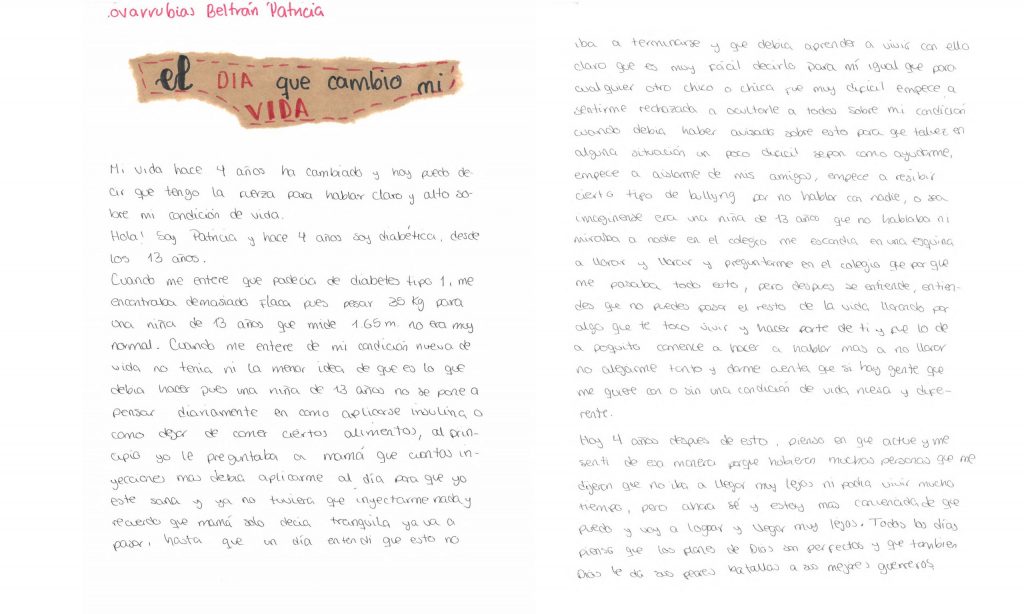 ovarrubias Beltrán Patricia
el DIA que cambio mi
VIDA
Mi vida hace 4 años ha cambiado y hoy puedo de-
cir que tengo la fuerza para hablar claro y alto so-
bre mi condición de vida.
Hola! Soy Patricia y hace 4 años soy diabética, desde
los 13 años.
Cuando me entere que padecia de diabetes tipo 1, me
encontraba demasiado flaca pues pesar 35 Kg para
una niña de 13 años que mide 1.65 m. no era muy
normal. Cuando me entere de mi condición nueva de
vida no tenia ni la menor idea de que es lo que
debia hacer pues una niña de 13 años no se pone a
pensar diariamente en como aplicarse insulina o
como dejar de comer ciertos alimentos, al prin-
cipio yo le preguntaba a mamá que cuantas in-
yecciones mas debia aplicarme al día para que yo
este sana y ya no tuviera que inyectarme nada y
recuerdo que mamá solo decia tranquila ya va a
pasar, hasta que un día entendí que esto no
iba a terminarse y que debia aprender a vivir con ello
claro que es muy fácil decirlo para mí igual que para
cualquier otro chico o chica fue muy dificil empece a
sentirme rechazada a ocultarle a todos sobre mi condición
cuando debia haber avisado sobre esto para que talvez en
alguna situación un poco dificil sepan como ayudarme,
empece a aislarme de mis amigos, empece a resibir
cierto tipo de bullyng por no hablar con nadie, o sea
imaginense era una niña de 13 años que no hablaba ni
miraba a nadie en el colegio me escondia en una esquina
a llorar y llorar y preguntarme en el colegio que por que
me pasaba todo esto, pero despues se entiende, entien-
des que no puedes pasar el resto de la vida llorando por
algo que te toco vivir y hacer parte de ti y fue lo de
a poquito comence a hacer a hablar mas a no llorar
no alejarme tanto y darme cuenta que si hay gente que
me quiere con o sin una condición de vida nueva y dife-
rente.
Hoy 4 años despues de esto, pienso en que actue y me
senti de esa manera porque hubieron muchas personas que me
dijeron que no iba a llegar muy lejos ni podia vivir mucho
tiempo, pero ahora sé y estoy mas convencida de que
puedo y voy a lograr y llegar muy lejos. Todos los días
pienso que los planes de Dios son perfectos y que tambien
Dios le da sus peores batallas a sus mejores guerreros